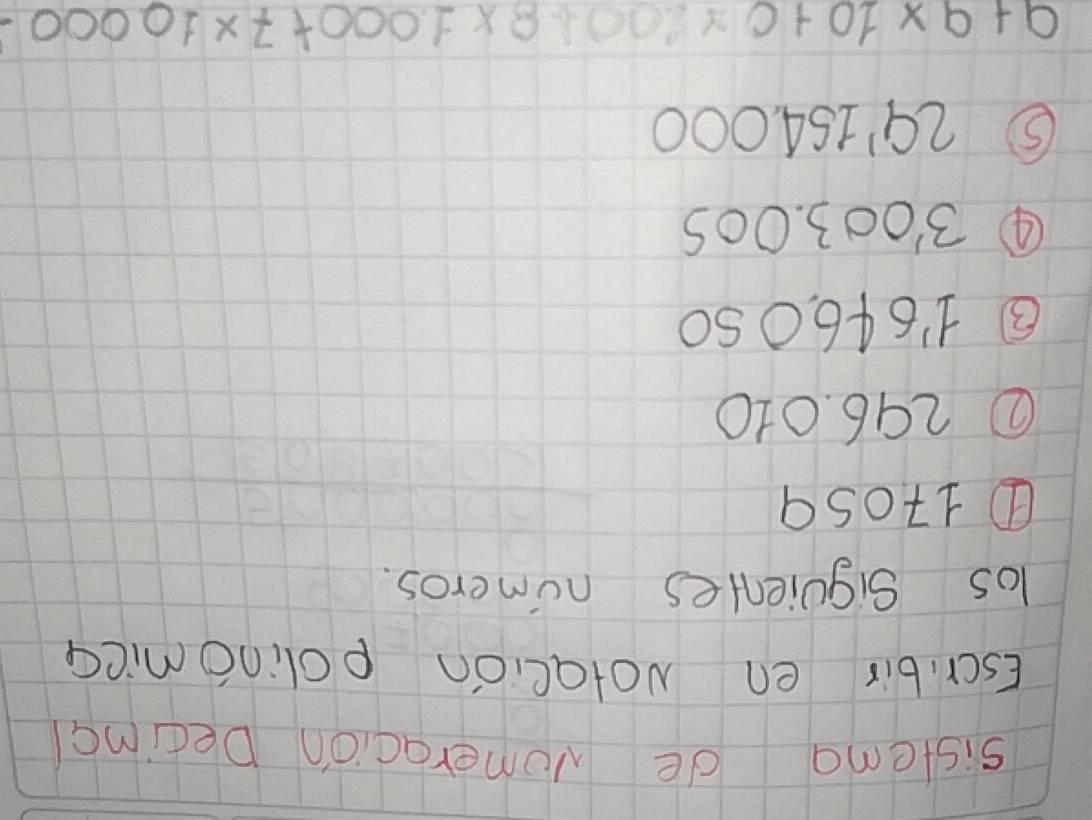 Sistema de Numeración Decimal
Escribir en Notación polinómica
los siguientes números.
① 17059
② 296.010
③ 1'646.050
④ 3'003.005
⑤ 29'154.000
9+9×10+0×100+8×1.000+7×10000